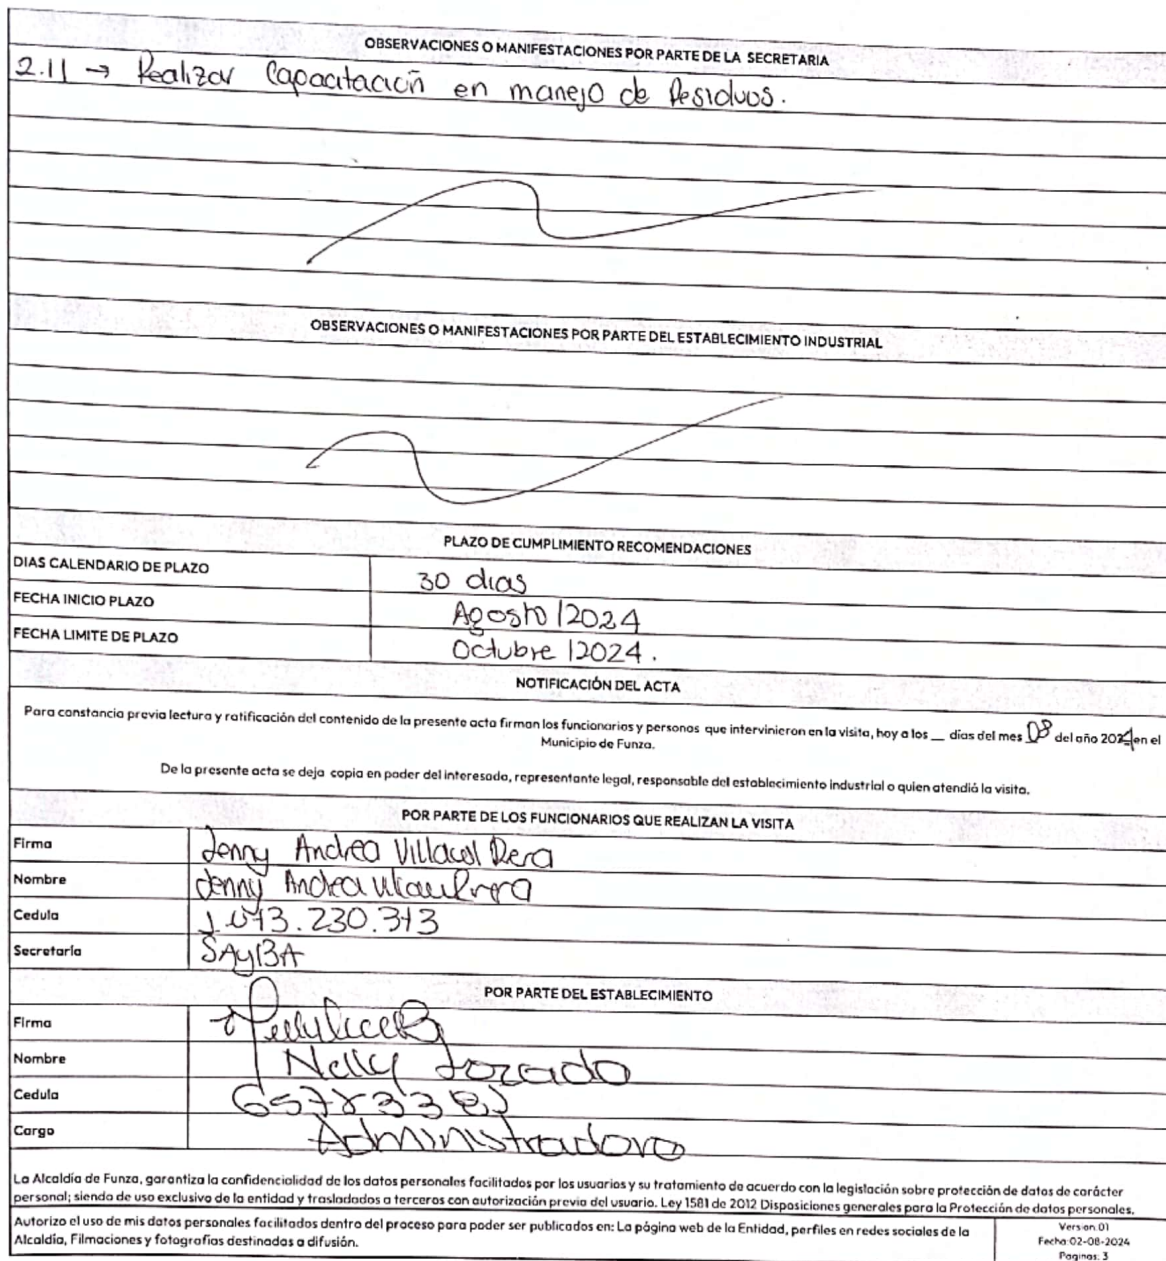 OBSERVACIONES O MANIFESTACIONES POR PARTE DE LA SECRETARIA
2.11 → Realizar Capacitación en manejo de Residuos.
OBSERVACIONES O MANIFESTACIONES POR PARTE DEL ESTABLECIMIENTO INDUSTRIAL
PLAZO DE CUMPLIMIENTO RECOMENDACIONES
DIAS CALENDARIO DE PLAZO 30 dias
FECHA INICIO PLAZO Agosto /2024
FECHA LIMITE DE PLAZO Octubre /2024.
NOTIFICACIÓN DEL ACTA
Para constancia previa lectura y ratificación del contenido de la presente acta firman los funcionarios y personas que intervinieron en la visita, hoy a los __ días del mes 08 del año 2024 en el
Municipio de Funza.
De la presente acta se deja copia en poder del interesado, representante legal, responsable del establecimiento industrial o quien atendió la visita.
POR PARTE DE LOS FUNCIONARIOS QUE REALIZAN LA VISITA
Firma Jenny Andrea
Nombre Jenny Andrea
Cedula
Secretaría SAyBA
POR PARTE DEL ESTABLECIMIENTO
Firma
Nombre Nelly Lozado
Cedula
Cargo Administradora
La Alcaldía de Funza, garantiza la confidencialidad de los datos personales facilitados por los usuarios y su tratamiento de acuerdo con la legislación sobre protección de datos de carácter
personal; siendo de uso exclusivo de la entidad y trasladados a terceros con autorización previa del usuario. Ley 1581 de 2012 Disposiciones generales para la Protección de datos personales.
Autorizo el uso de mis datos personales facilitados dentro del proceso para poder ser publicados en: La página web de la Entidad, perfiles en redes sociales de la
Alcaldía, Filmaciones y fotografías destinadas a difusión.
Version 01
Fecha 02-08-2024
Paginas: 3